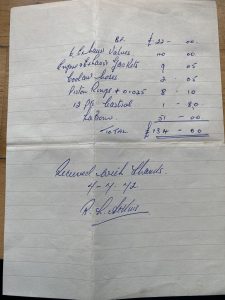 B.F. £ 22 - 00.
6 Exhaust Valves 10 00
Gaskets 9 05
Coolant Hoses 3 . 05
Piston Rings + 0.025 8 - 10
13 Castrol 1 - 80
Labour 51 - 00
TOTAL £ 134 - 00
Received with thanks.
4-7-72